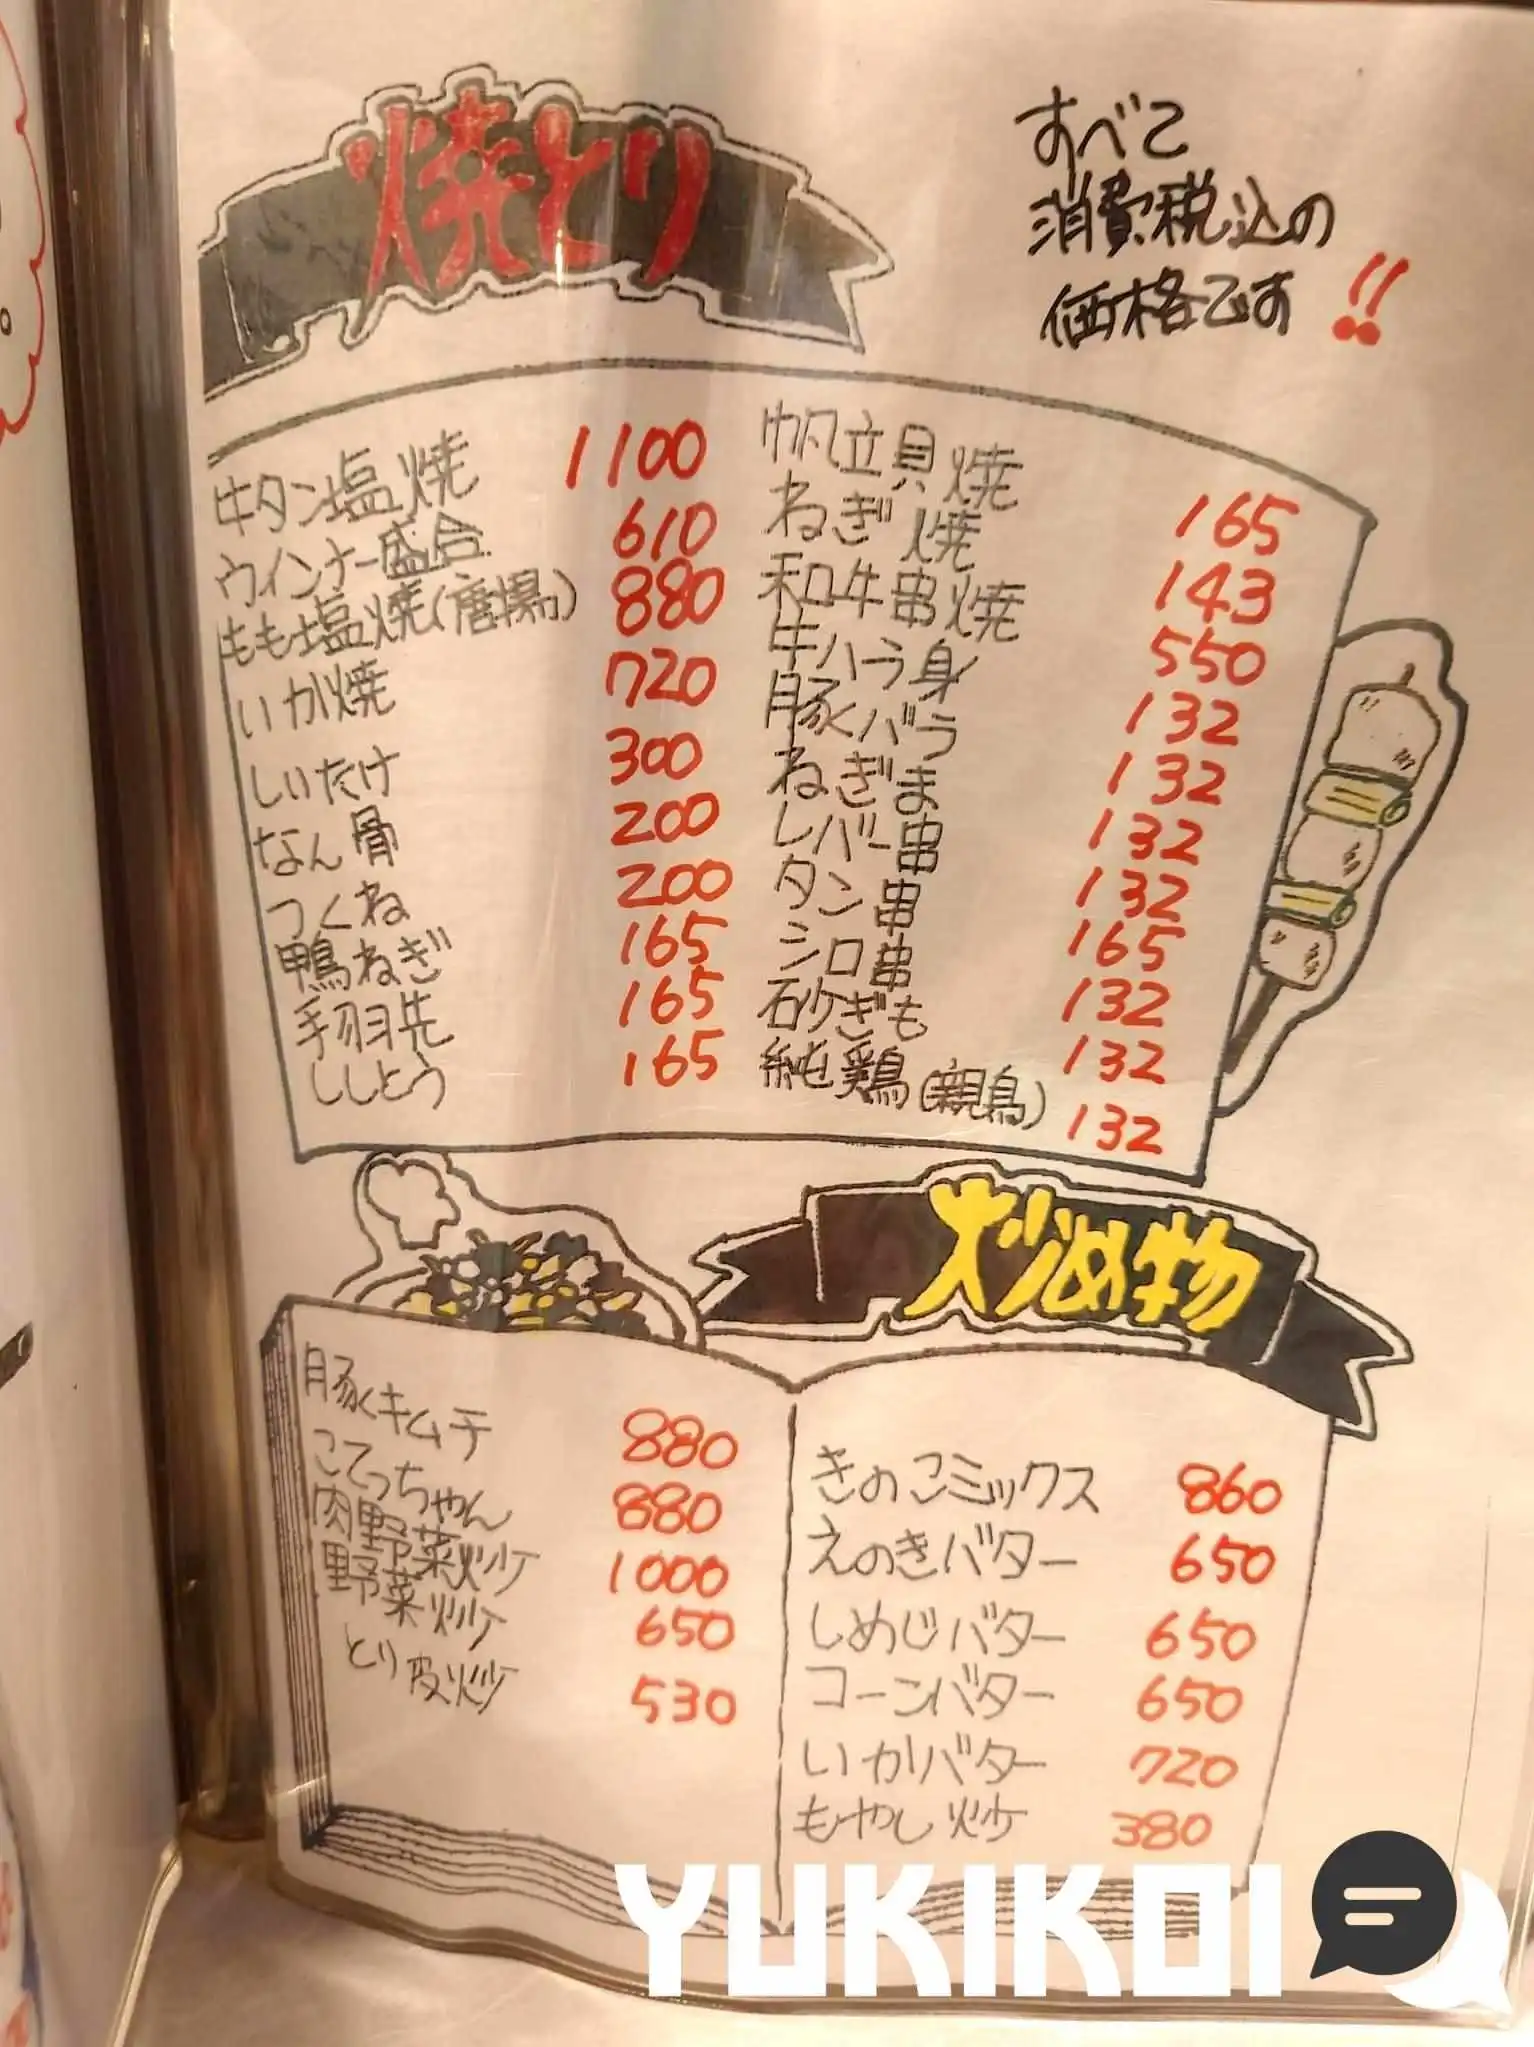 焼とり
すべて
消費税込の
価格です!!
牛タン塩焼 1100
ウインナー盛合 610
もも塩焼(唐揚) 880
いか焼 720
しいたけ 300
なん骨 200
つくね 200
鴨ねぎ 165
手羽先 165
ししとう 165
帆立貝焼 165
ねぎ焼 143
和牛串焼 550
牛ハラ身 132
豚バラ 132
ねぎま 132
レバー串 132
タン串 165
シロ串 132
砂ぎも 132
純鶏(親鳥) 132
炒め物
豚キムチ 880
こてっちゃん 880
肉野菜炒 1000
野菜炒 650
とり皮炒 530
きのこミックス 860
えのきバター 650
しめじバター 650
コーンバター 650
いかバター 720
もやし炒 380
YUKIKOI